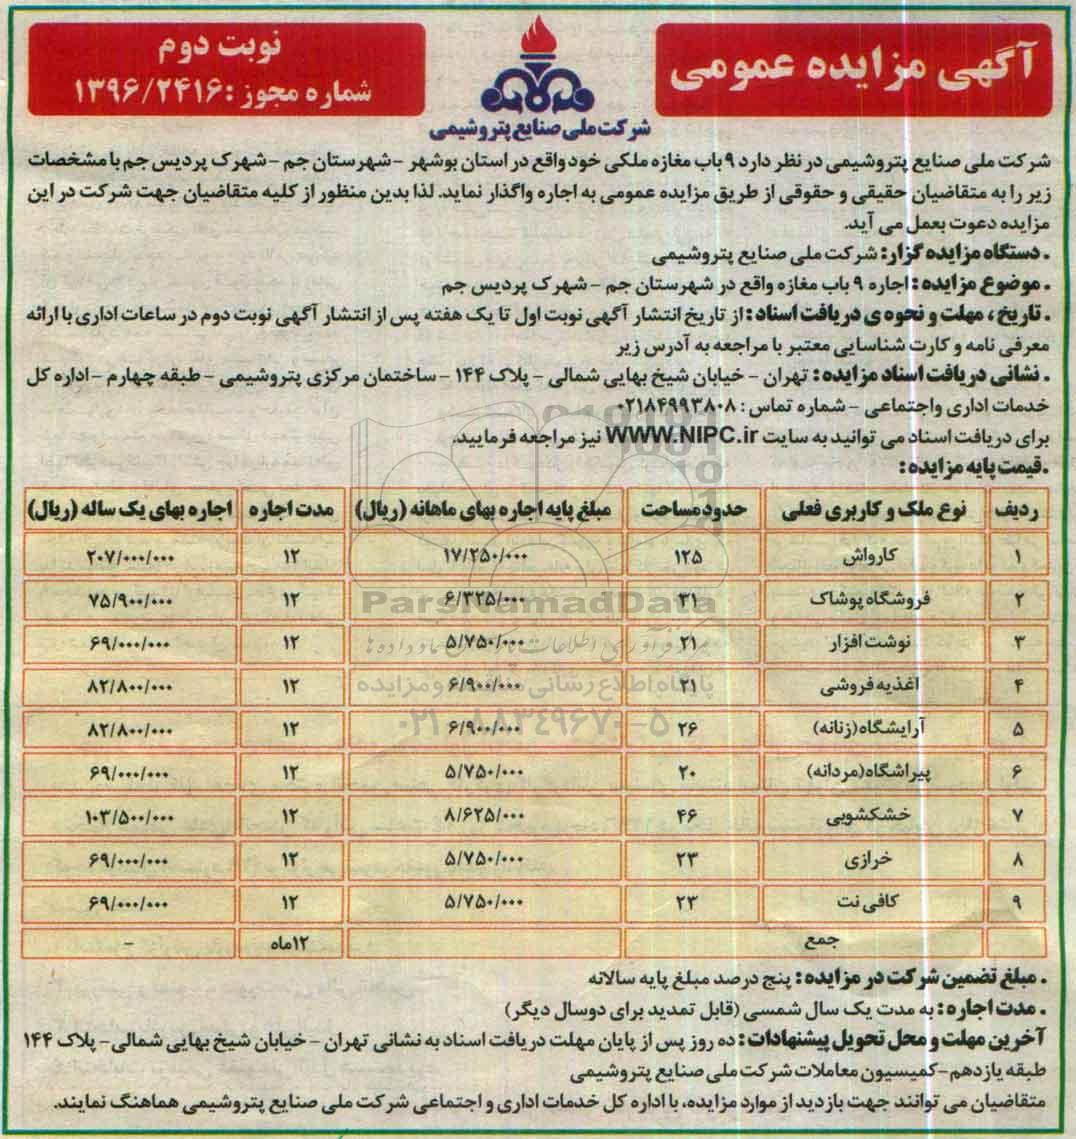 آگهی مزایده عمومی
نوبت دوم
شماره مجوز: ۱۳۹۶/۲۴۱۶
شرکت ملی صنایع پتروشیمی
شرکت ملی صنایع پتروشیمی در نظر دارد ۹ باب مغازه ملکی خود واقع در استان بوشهر - شهرستان جم - شهرک پردیس جم با مشخصات
زیر را به متقاضیان حقیقی و حقوقی از طریق مزایده عمومی به اجاره واگذار نماید. لذا بدین منظور از کلیه متقاضیان جهت شرکت در این
مزایده دعوت بعمل می آید.
. دستگاه مزایده گزار: شرکت ملی صنایع پتروشیمی
. موضوع مزایده: اجاره ۹ باب مغازه واقع در شهرستان جم - شهرک پردیس جم
. تاریخ، مهلت و نحوه ی دریافت اسناد: از تاریخ انتشار آگهی نوبت اول تا یک هفته پس از انتشار آگهی نوبت دوم در ساعات اداری با ارائه
معرفی نامه و کارت شناسایی معتبر با مراجعه به آدرس زیر
. نشانی دریافت اسناد مزایده: تهران - خیابان شیخ بهایی شمالی - پلاک ۱۴۴ - ساختمان مرکزی پتروشیمی - طبقه چهارم - اداره کل
خدمات اداری واجتماعی - شماره تماس: ۰۲۱۸۴۹۹۳۸۰۸
برای دریافت اسناد می توانید به سایت WWW.NIPC.ir نیز مراجعه فرمایید.
. قیمت پایه مزایده:
ردیف نوع ملک و کاربری فعلی حدود مساحت مبلغ پایه اجاره بهای ماهانه (ریال) مدت اجاره اجاره بهای یک ساله (ریال)
۱ کارواش ۱۲۵ ۱۷/۲۵۰/۰۰۰ ۱۲ ۲۰۷/۰۰۰/۰۰۰
۲ فروشگاه پوشاک ۳۱ ۶/۳۲۵/۰۰۰ ۱۲ ۷۵/۹۰۰/۰۰۰
۳ نوشت افزار ۲۱ ۵/۷۵۰/۰۰۰ ۱۲ ۶۹/۰۰۰/۰۰۰
۴ اغذیه فروشی ۲۱ ۶/۹۰۰/۰۰۰ ۱۲ ۸۲/۸۰۰/۰۰۰
۵ آرایشگاه(زنانه) ۲۶ ۶/۹۰۰/۰۰۰ ۱۲ ۸۲/۸۰۰/۰۰۰
۶ پیراشگاه(مردانه) ۲۰ ۵/۷۵۰/۰۰۰ ۱۲ ۶۹/۰۰۰/۰۰۰
۷ خشکشویی ۴۶ ۸/۶۲۵/۰۰۰ ۱۲ ۱۰۳/۵۰۰/۰۰۰
۸ خرازی ۲۳ ۵/۷۵۰/۰۰۰ ۱۲ ۶۹/۰۰۰/۰۰۰
۹ کافی نت ۲۳ ۵/۷۵۰/۰۰۰ ۱۲ ۶۹/۰۰۰/۰۰۰
جمع ۱۲ماه -
. مبلغ تضمین شرکت در مزایده: پنج درصد مبلغ پایه سالانه
. مدت اجاره: به مدت یک سال شمسی (قابل تمدید برای دوسال دیگر)
آخرین مهلت و محل تحویل پیشنهادات: ده روز پس از پایان مهلت دریافت اسناد به نشانی تهران - خیابان شیخ بهایی شمالی- پلاک ۱۴۴
طبقه یازدهم-کمیسیون معاملات شرکت ملی صنایع پتروشیمی
متقاضیان می توانند جهت بازدید از موارد مزایده، با اداره کل خدمات اداری و اجتماعی شرکت ملی صنایع پتروشیمی هماهنگ نمایند.
ParsNamadData
پایگاه اطلاع رسانی مناقصه و مزایده
۰۲۱-۸۸۳۴۹۶۷۰-۵